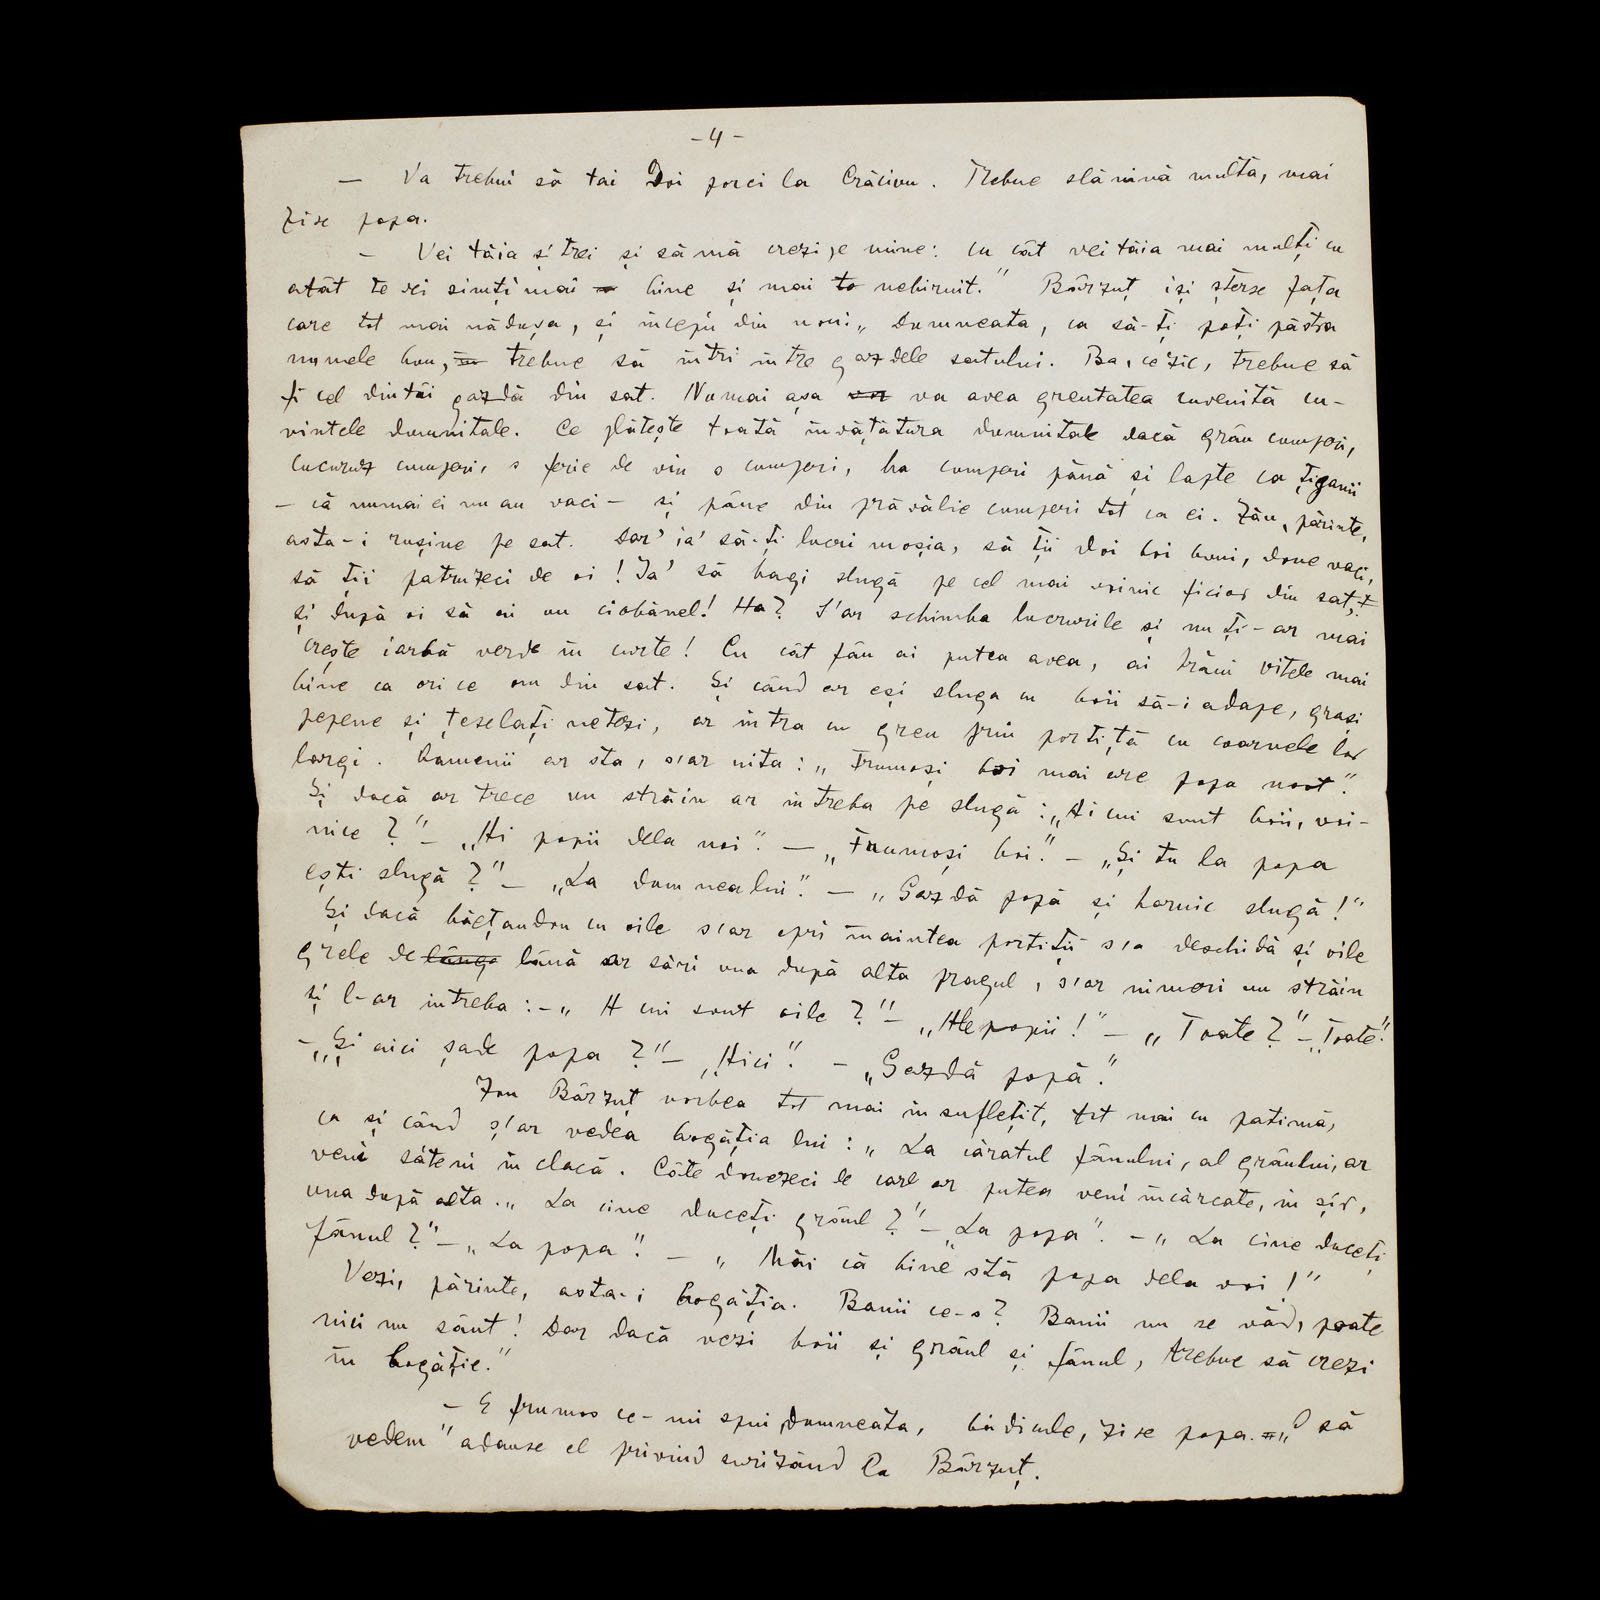 - 4 -
— Va trebui să tai Doi porci la Crăciun. Trebue slănină multă, mai
zise popa.
— Vei tăia și trei și să mă crezi pe mine: cu cât vei tăia mai mulți cu
atât te vei simți mai bine și mai nebiruit." Bârzuț iși șterse fața
care tot mai nădușa, și începù din nou: „Dumneata, ca să-ți poți păstra
numele bun, trebue să intri intre gazdele satului. Ba, ce zic, trebue să
fi cel dintâi gazdă din sat. Numai așa va avea greutatea cuvenită cu-
vintele dumnitale. Ce plătește toată învățătura dumnitale dacă grâu cumperi,
cucuruz cumperi, o ferie de vin o cumperi, ba cumperi până și lapte ca țiganii
— că numai ei nu au vaci — și pâne din prăvălie cumperi tot ca ei. Zău, părinte,
asta-i rușine pe sat. Dar' ia' să-ți lucri moșia, să ții doi boi buni, doue vaci,
să ții patruzeci de oi! Ia' să bagi slugă pe cel mai voinic ficior din sat,
și după oi să ai un ciobănel! Ha? S'ar schimba lucrurile și nu ți-ar mai
crește iarbă verde in curte! Cu cât fân ai putea avea, ai hrăni vitele mai
bine ca ori ce om din sat. Și când ar eși sluga cu boii să-i adape, grași
pepene și țeselați netezi, ar intra cu greu prin portiță cu coarnele lor
largi. Oamenii ar sta, s'ar uita: „Frumoși boi mai are popa nost".
Și dacă ar trece un străin ar intreba pe slugă: „Ai cui sunt boii, voi-
nice?" — „Ai popii dela noi". — „Frumoși boi". — „Și tu la popa
ești slugă?" — „La dumnealui". — „Gazdă popă și harnic slugă!"
Și dacă băețandru cu oile s'ar opri înaintea portiții s'o deschidă și oile
grele de lână ar sări una după alta pragul, s'ar nimeri un străin
și l-ar intreba: — „A cui sunt oile?" — „Ale popii!" — „Toate?" — „Toate".
— „Și aici șade popa?" — „Aici". — „Gazdă popă".
Ion Bârzuț vorbea tot mai insuflețit, tot mai cu patimă,
ca și când s'ar vedea bogăția lui: „La căratul fânului, al grâului, ar
veni săteni în clacă. Câte douezeci de care ar putea veni incărcate, in șir,
una după alta. „La cine duceți grâul?" — „La popa". — „La cine duceți
fânul?" — „La popa". — „Măi că bine stă popa dela voi!"
Vezi, părinte, asta-i bogăția. Banii ce-s? Banii nu se văd, poate
nici nu sânt! Dar dacă vezi boii și grâul și fânul, trebue să crezi
în bogăție."
— E frumos ce-mi spui dumneata, bădicule, zise popa. „O să
vedem" adause el privind surizând la Bârzuț.